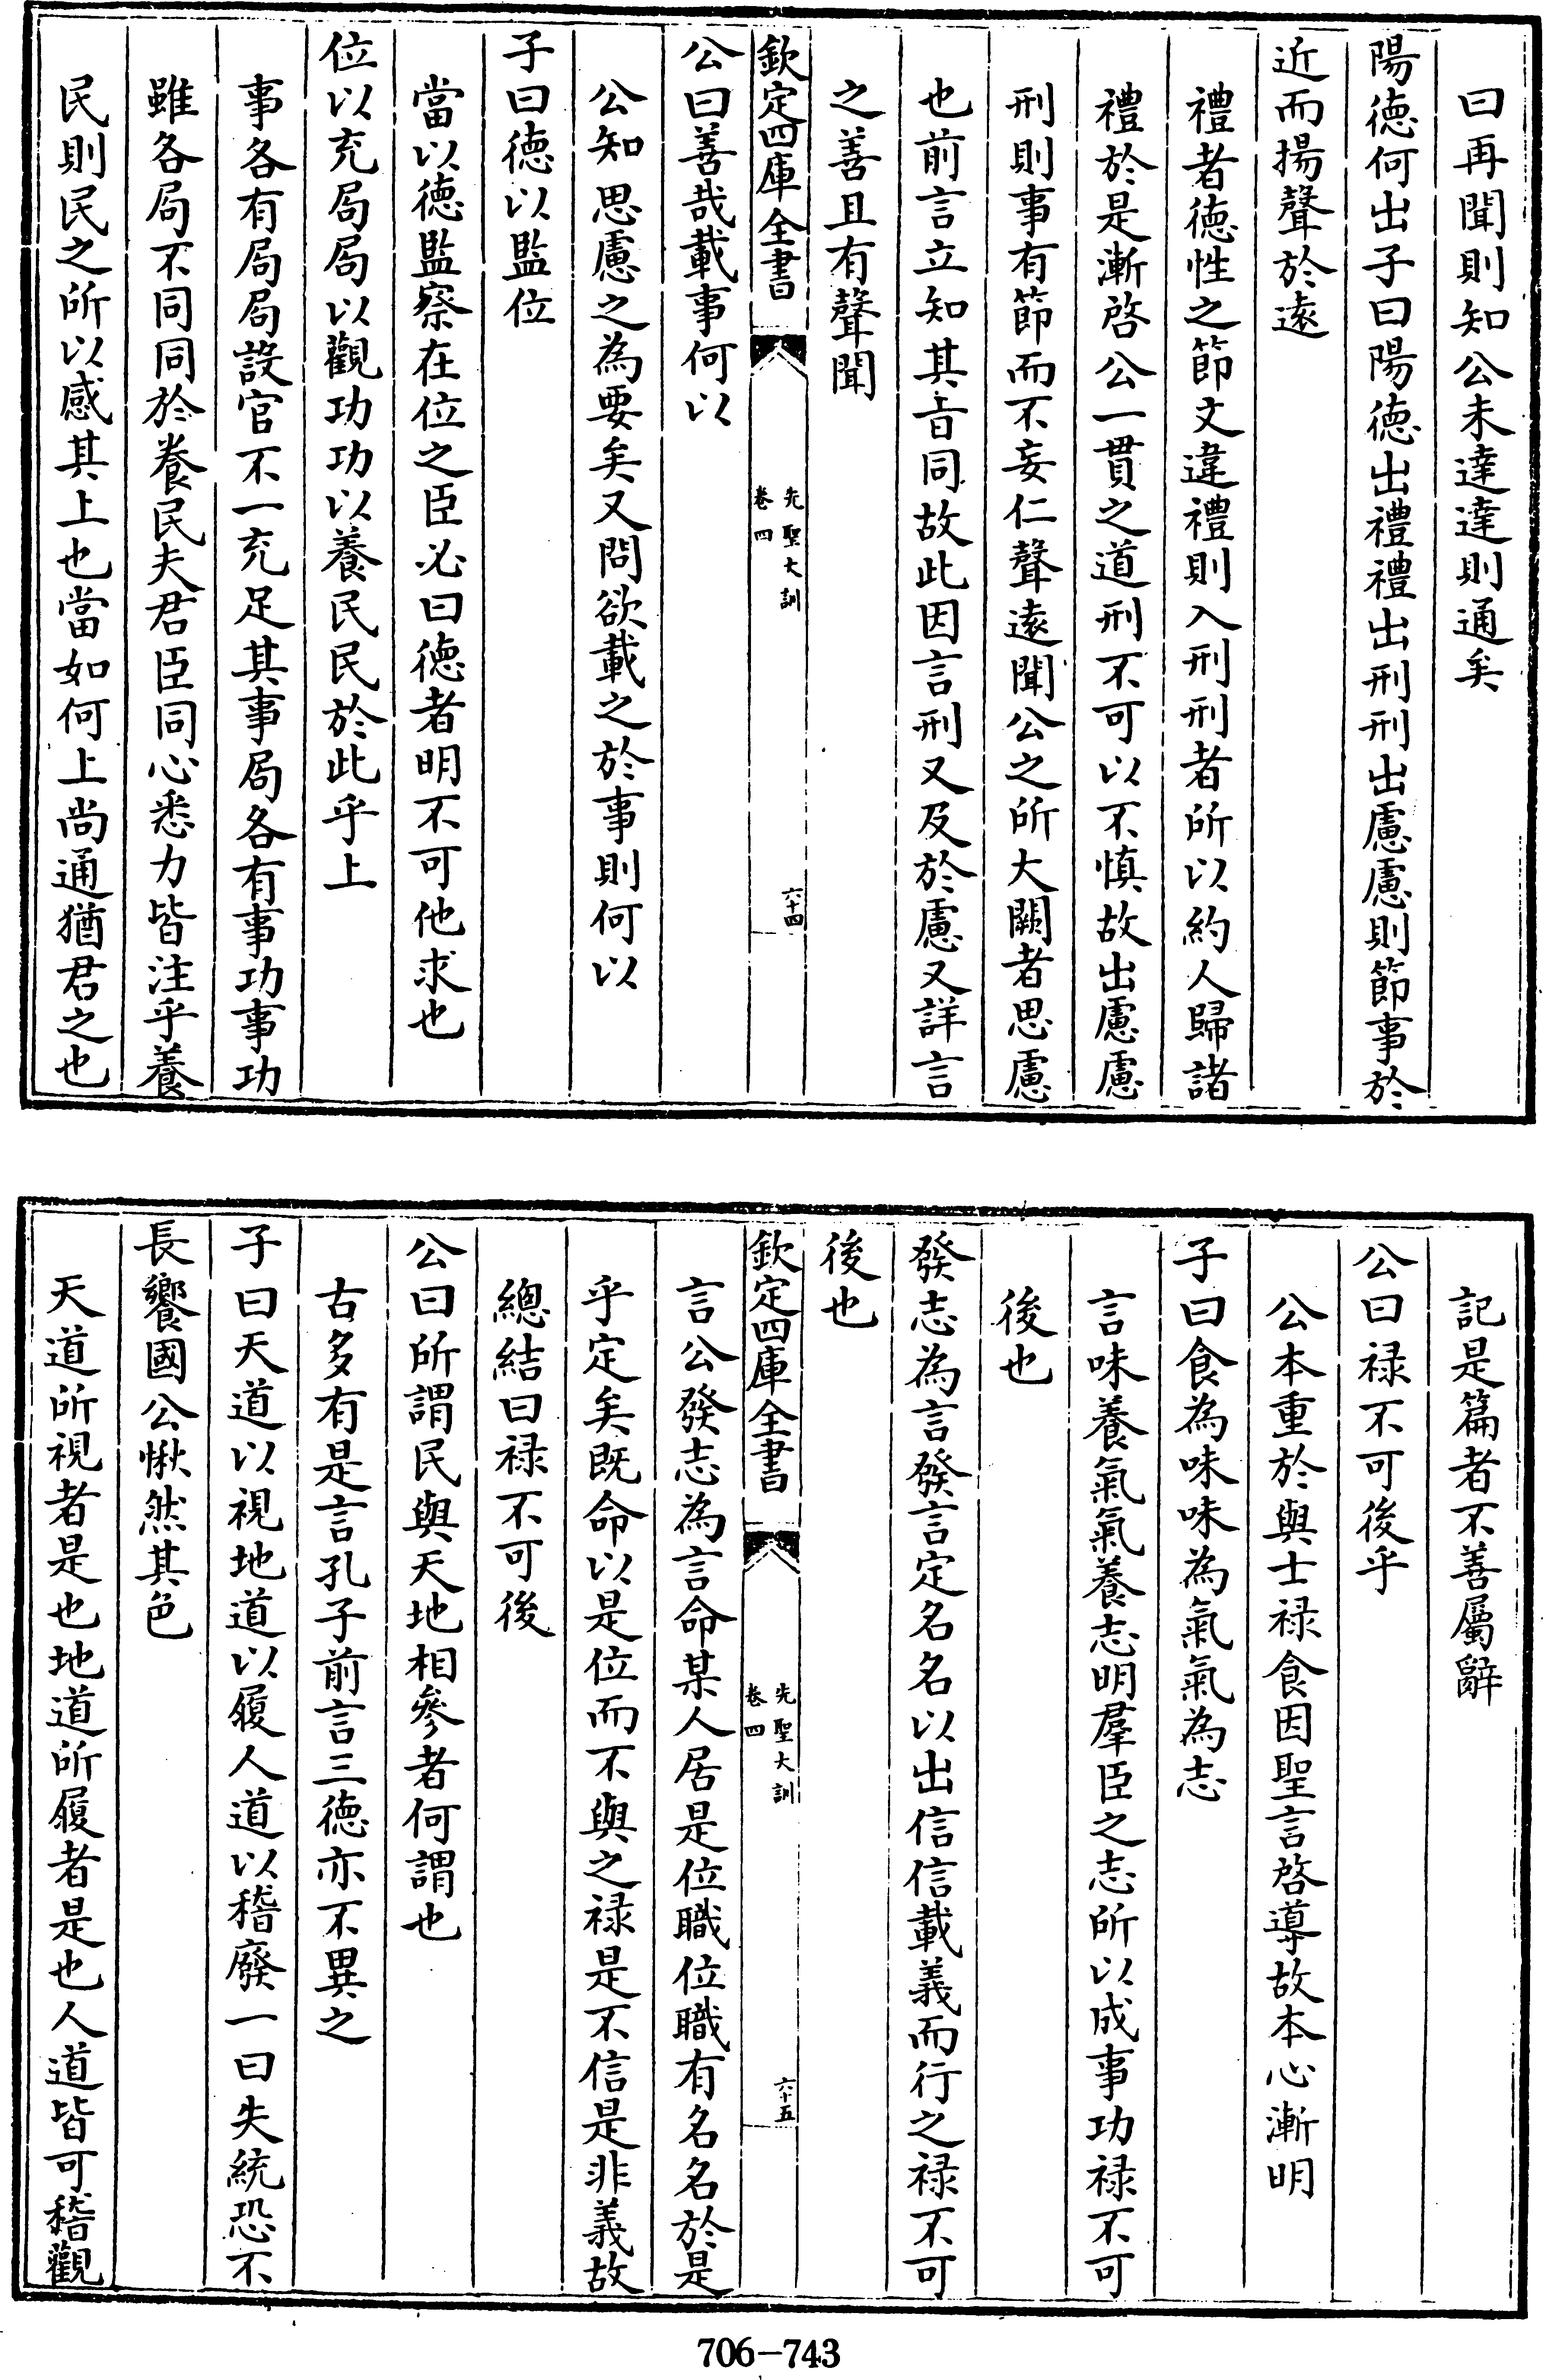 曰再聞則知公未達達則通矣
陽徳何出子曰陽徳出禮禮出刑刑出慮慮則節事於
近而揚聲於逺
禮者徳性之節文違禮則入刑刑者所以約人歸諸
禮於是漸啓公一貫之道刑不可以不慎故出慮慮
刑則事有節而不妄仁聲逺聞公之所大闕者思慮
也前言立知其㫖同故此因言刑又及於慮又詳言
之善且有聲聞
欽定四庫全書
先聖大訓
卷四
六十四
公曰善哉載事何以
公知思慮之為要矣又問欲載之於事則何以
子曰徳以監位
當以徳監察在位之臣必曰徳者明不可他求也
位以充局局以觀功功以養民民於此乎上
事各有局局設官不一充足其事局各有事功事功
雖各局不同同於養民夫君臣同心悉力皆注乎養
民則民之所以感其上也當如何上尚通猶君之也
記是篇者不善屬辭
公曰禄不可後乎
公本重於與士禄食因聖言啓導故本心漸明
子曰食為味味為氣氣為志
言味養氣氣養志明羣臣之志所以成事功禄不可
後也
發志為言發言定名名以出信信載義而行之禄不可
後也
欽定四庫全書
先聖大訓
卷四
六十五
言公發志為言命某人居是位職位職有名名於是
乎定矣既命以是位而不與之禄是不信是非義故
總結曰禄不可後
公曰所謂民與天地相參者何謂也
古多有是言孔子前言三徳亦不異之
子曰天道以視地道以履人道以稽廢一曰失統恐不
長饗國公愀然其色
天道所視者是也地道所履者是也人道皆可稽觀
706-743